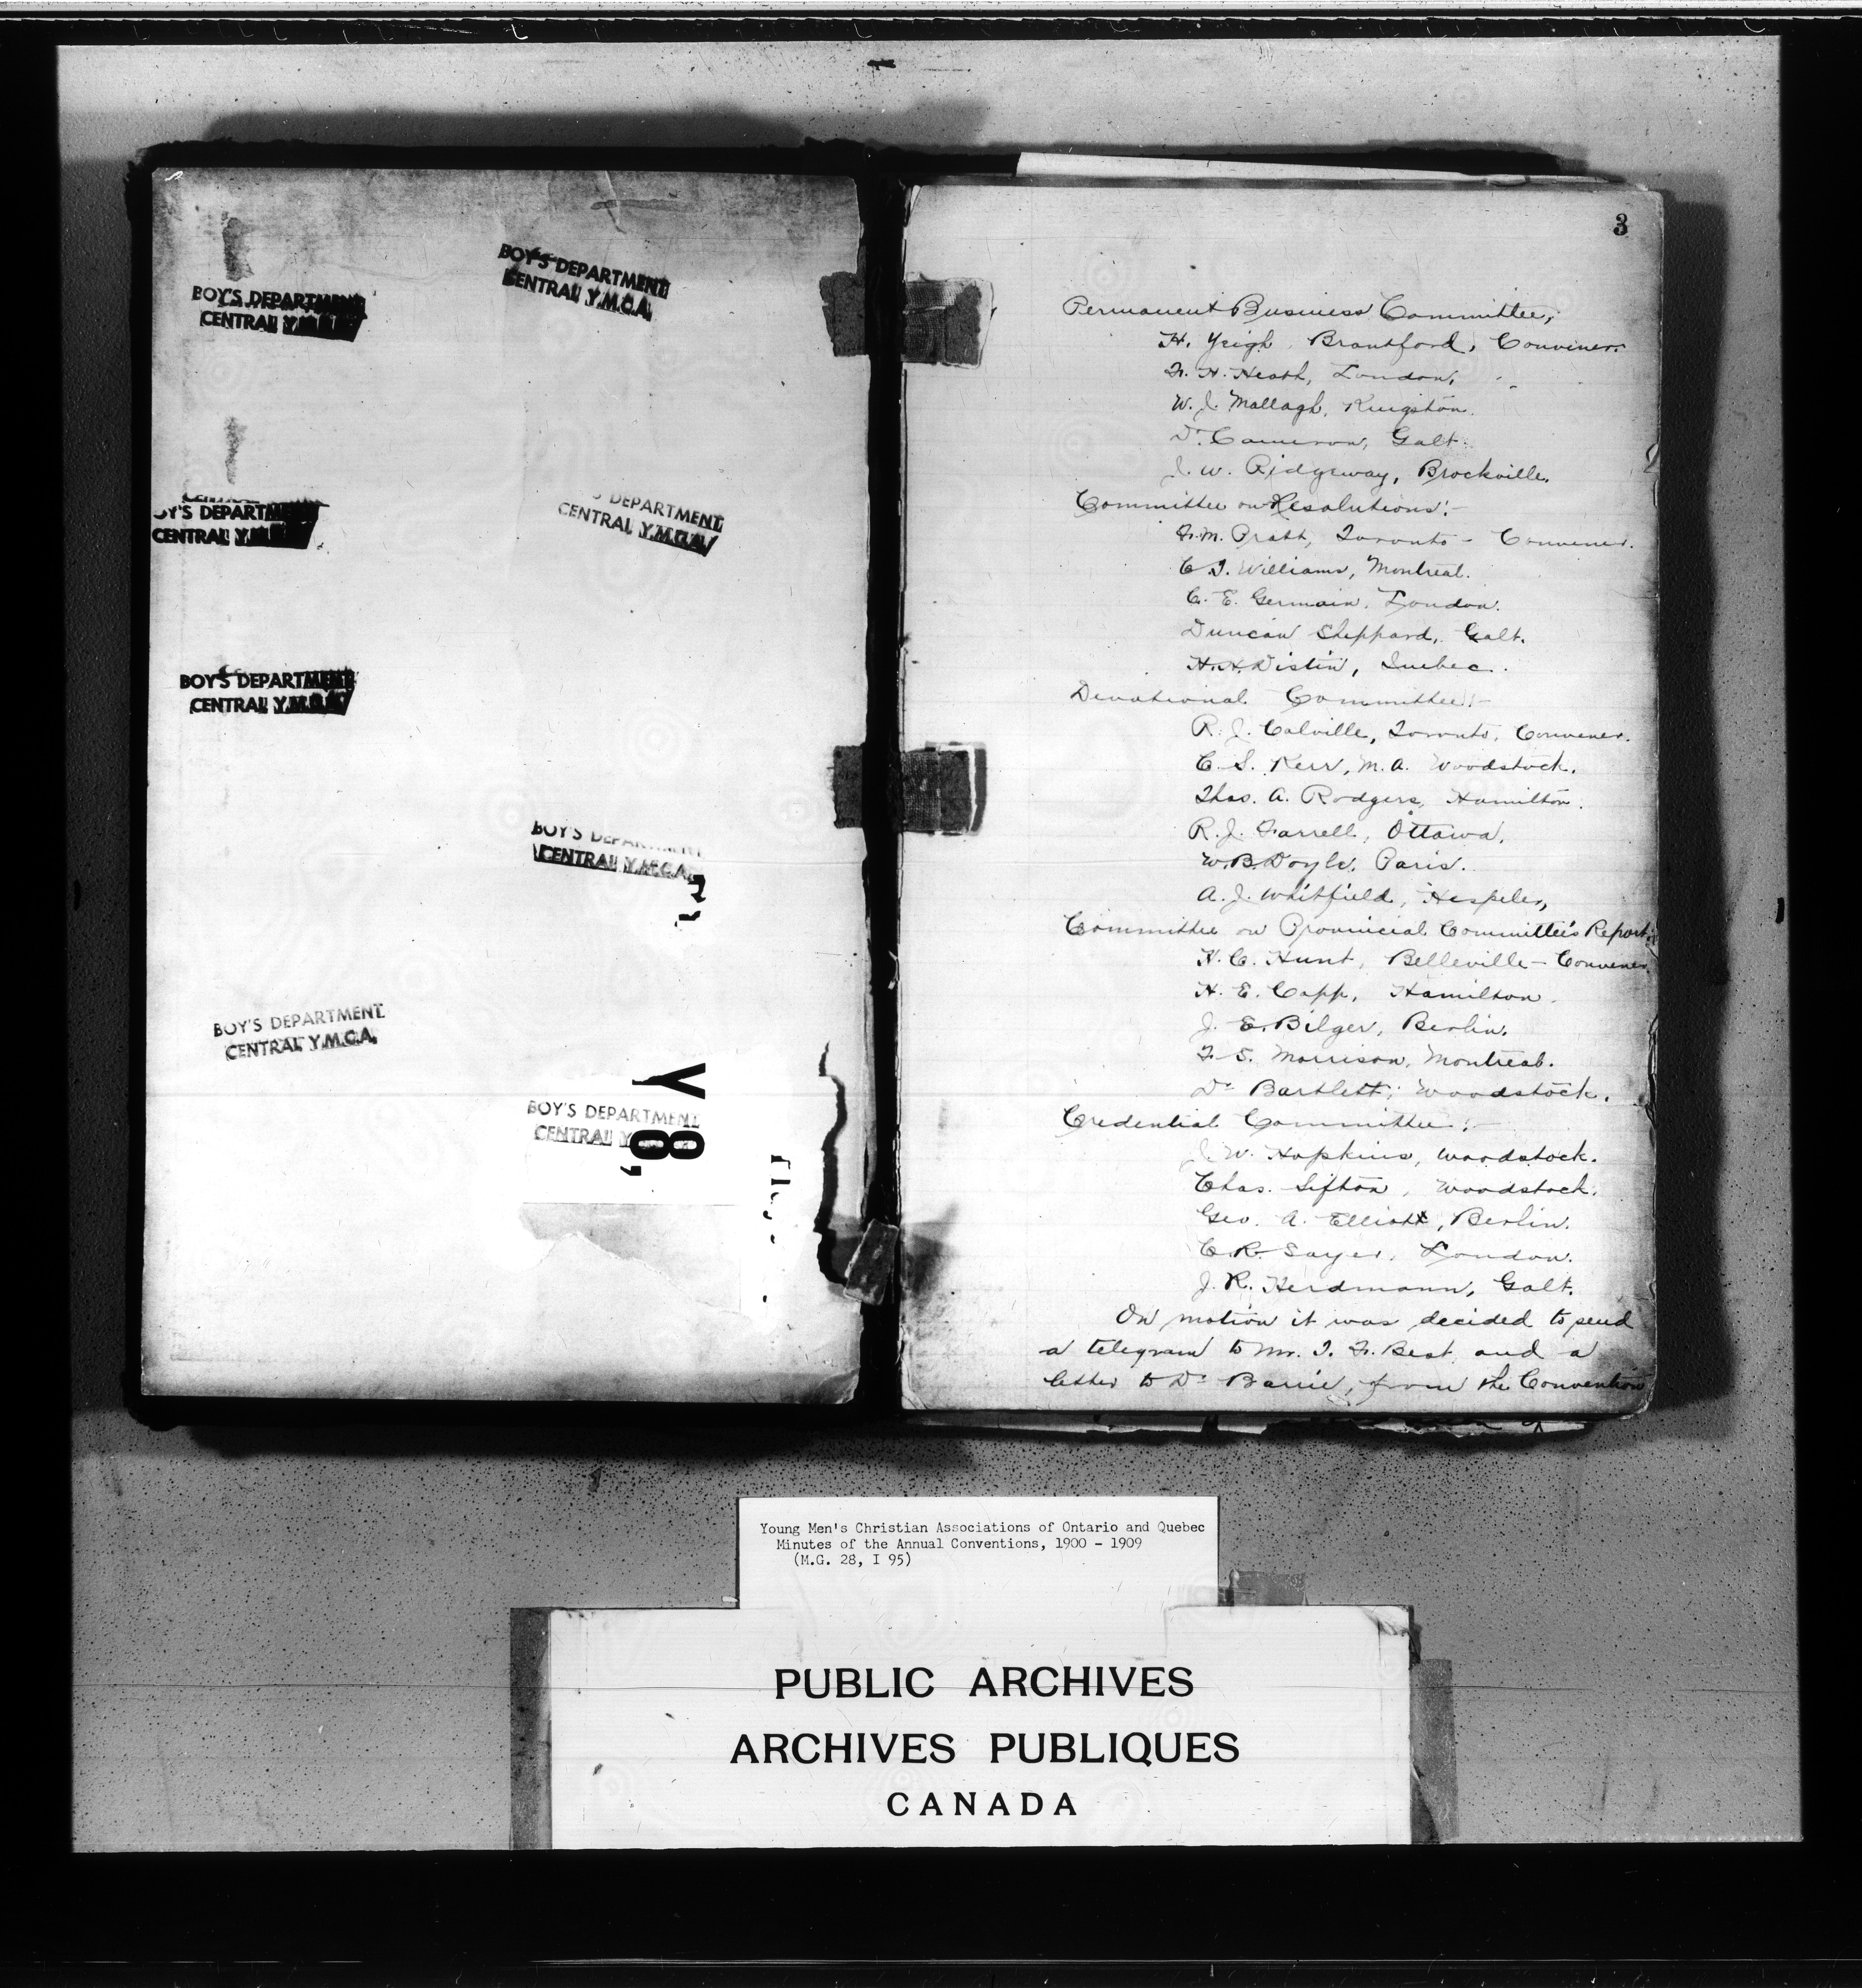 BOY'S DEPARTMENT
CENTRAL Y.M.C.A.
BOY'S DEPARTMENT
CENTRAL Y.M.C.A.
OY'S DEPARTMENT
CENTRAL Y.M.C.A.
DEPARTMENT
CENTRAL Y.M.C.A.
BOY'S DEPARTMENT
CENTRAL Y.M.C.A.
BOY'S DEPARTMENT
CENTRAL Y.M.C.A.
BOY'S DEPARTMENT
CENTRAL Y.M.C.A.
BOY'S DEPARTMENT
CENTRAL Y
Y
8,
3
Permanent Business Committee,
H. Yeigh, Brantford, Convener.
F. H. Heath, London,
W. J. Mallagh, Kingston.
Dr. Cameron, Galt.
J. W. Ridgeway, Brockville.
Committee on Resolutions:-
F. M. Pratt, Toronto - Convener.
C. T. Williams, Montreal.
C. E. Germain, London.
Duncan Sheppard, Galt.
H. H. Distin, Quebec.
Devotional Committee:-
R. J. Colville, Toronto, Convener.
C. S. Kerr, M.A. Woodstock.
Thos. A. Rodgers, Hamilton.
R. J. Farrell, Ottawa.
W. B. Doyle, Paris.
A. J. Whitfield, Hespeler,
Committee on Provincial Committee's Report:
H. C. Hunt, Belleville - Convener.
H. E. Capp, Hamilton.
J. E. Bilger, Berlin.
F. S. Morrison, Montreal.
Dr Bartlett, Woodstock.
Credential Committee:-
J. W. Hopkins, Woodstock.
Chas. Sifton, Woodstock.
Geo. A. Elliott, Berlin.
C. R. Sayer, London.
J. R. Herdmann, Galt.
On motion it was decided to send
a telegram to Mr. T. F. Best, and a
letter to Dr Barrie, from the Convention
Young Men's Christian Associations of Ontario and Quebec
Minutes of the Annual Conventions, 1900 - 1909
(M.G. 28, I 95)
PUBLIC ARCHIVES
ARCHIVES PUBLIQUES
CANADA